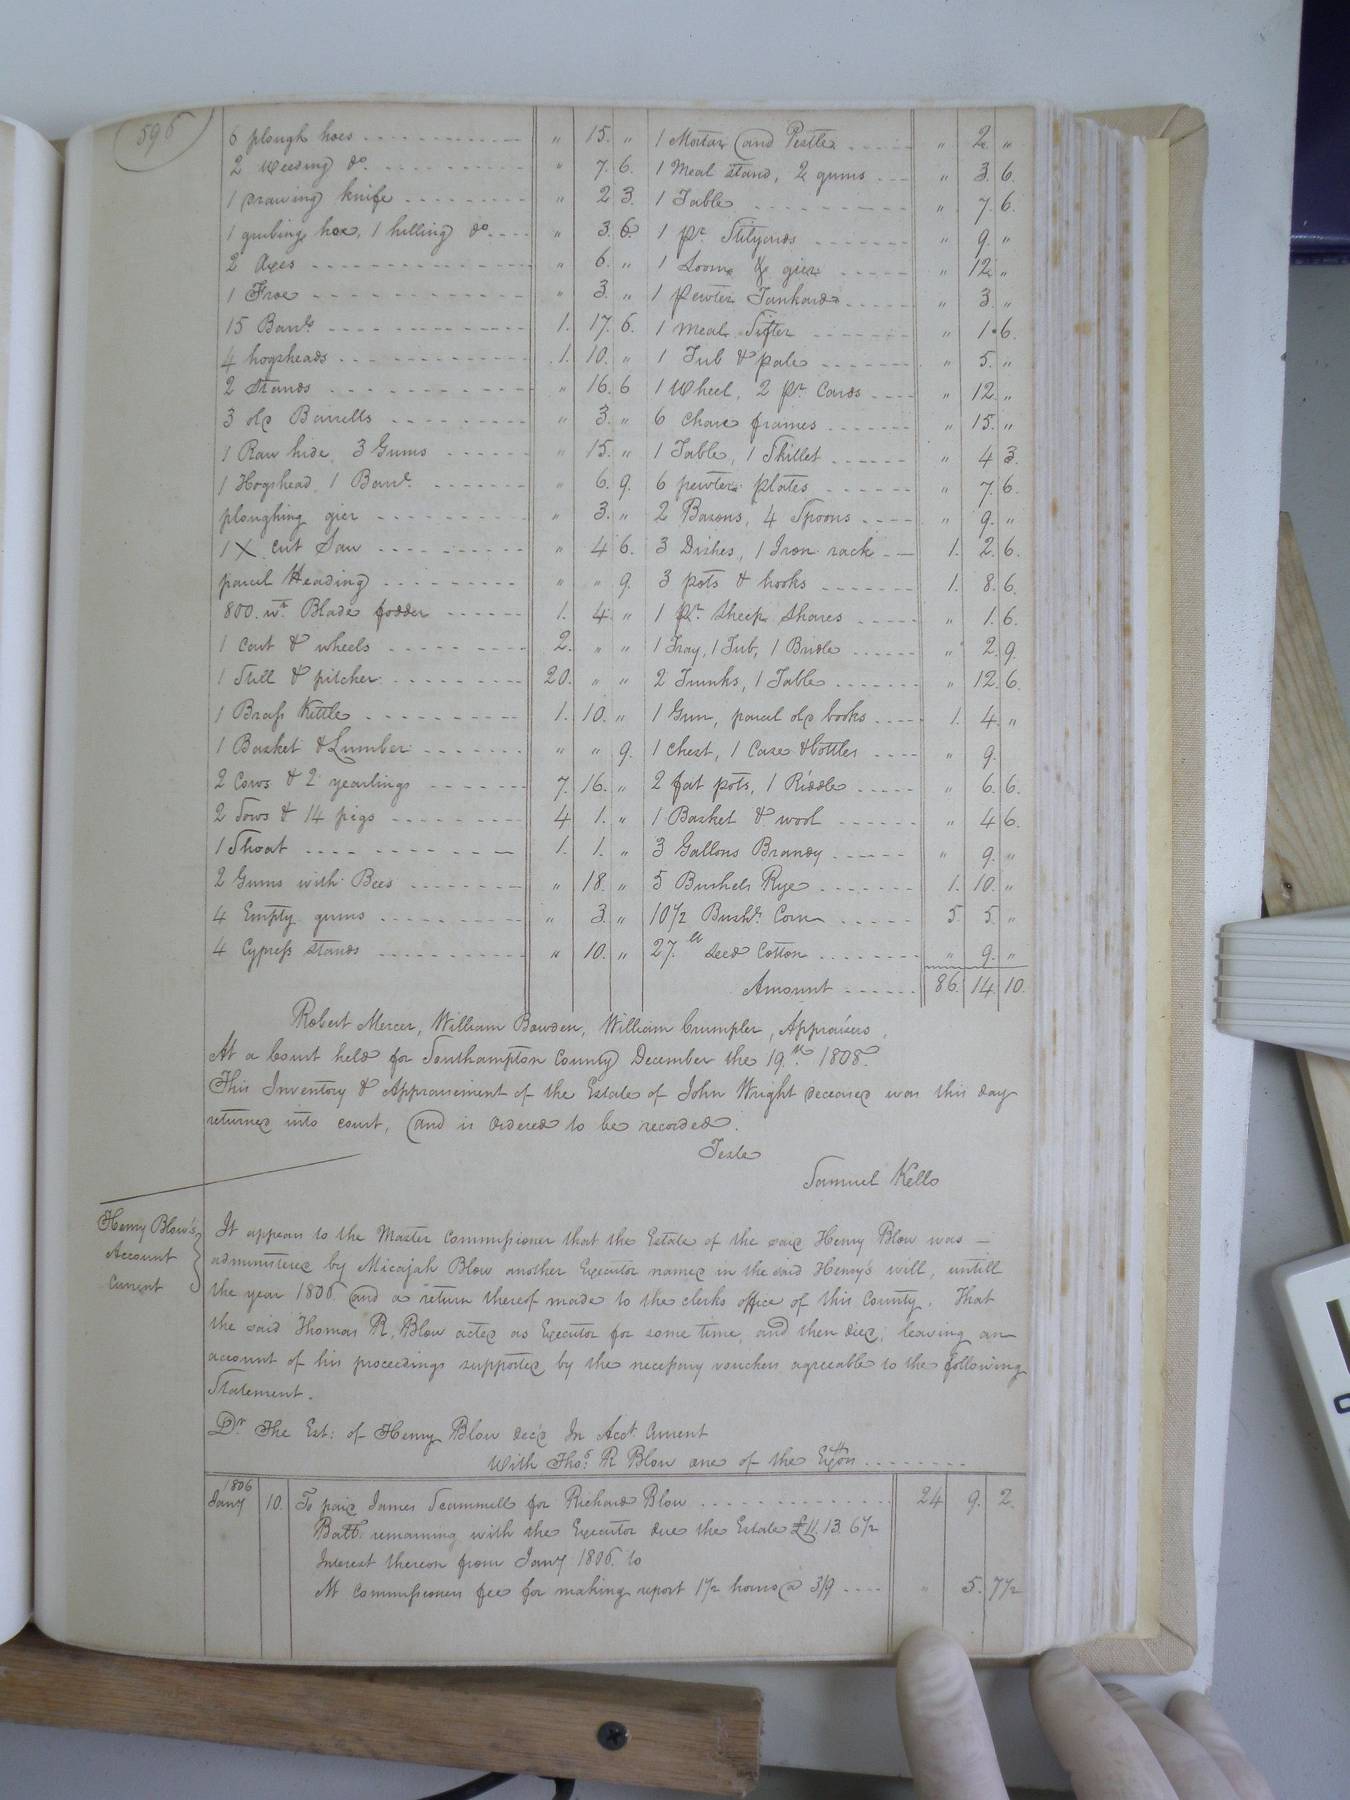 596
6 plough hoes " 15. " 1 Mortar and Pestle " 2. "
2 weeding do. " 7. 6. 1 Meal stand, 2 gums " 3. 6.
1 Drawing knife " 2 3. 1 Table " 7. 6.
1 grubing hoe, 1 hilling do. " 3. 6. 1 pr. Stilyards " 9. "
2 Axes " 6. " 1 Loom & gier " 12. "
1 Froe " 3. " 1 pewter Tankard " 3 "
15 Barrls 1. 17. 6. 1 Meal Sifter " 1. 6.
4 hogsheads 1. 10. " 1 Tub & pale " 5. "
2 Stands " 16. 6 1 Wheel, 2 pr. Cards " 12. "
3 old Barrells " 3. " 6 Chare frames " 15. "
1 Raw hide, 3 Gums " 15. " 1 Table, 1 Skillet " 4 3.
1 Hogshead, 1 Barrl. " 6. 9. 6 pewter plates " 7. 6.
ploughing gier " 3. " 2 Basons, 4 Spoons " 9. "
1 X cut Saw " 4 6. 3 Dishes, 1 Iron rack 1. 2. 6.
parcel Heading " " 9. 3 pots & hooks 1. 8. 6.
800. wt. Blade fodder 1. 4. " 1 pr. sheep shares " 1. 6.
1 Cart & wheels 2. " " 1 Tray, 1 Tub, 1 Bridle " 2. 9.
1 Still & pitcher 20. " " 2 Trunks, 1 Table " 12. 6.
1 Brass Kettle 1. 10. " 1 Gun, parcel old books 1. 4. "
1 Basket & Lumber " " 9. 1 Chest, 1 Case & bottles " 9.
2 Cows & 2 yearlings 7. 16. " 2 fat pots, 1 Riddle " 6. 6.
2 Sows & 14 pigs 4 1. " 1 Basket & wool " 4 6.
1 Shoat 1. 1. " 3 Gallons Brandy " 9. "
2 Gums with Bees " 18. " 5 Bushels Rye 1. 10. "
4 Empty gums " 3. " 10 1/2 Bushls. Corn 5. 5. "
4 Cypress stands " 10. " 27. lb seed Cotton " 9. "
Amount 86. 14 10.
Robert Mercer, William Bowden, William Crumpler, Appraisers.
At a Court held for Southampton County December the 19.th 1808.
This Inventory & Appraisement of the Estate of John Wright deceased was this day
returned into court, and is ordered to be recorded.
Teste
Samuel Kello
Henry Blow's
Account
Current
It appears to the Master Commissioner that the Estate of the said Henry Blow was
administered by Micajah Blow another Executor named in the said Henry's will, untill
the year 1806 and a return thereof made to the clerks office of this County. That
the said Thomas R. Blow acted as Executor for some time, and then died; leaving an
account of his proceedings supported by the necessary vouchers agreeable to the following
Statement.
Dr. The Est: of Henry Blow dec'd In Acct Current
With Thos. R Blow one of the Exors
1806
Jany 10. To paid James Scammell for Richard Blow 24 9. 2.
Ball. remaining with the Executor due the Estate £11.13.6 1/2
Interest thereon from Jany 1806. to
Mr Commissioners fee for making report 1 1/2 hours @ 3/9 " 5. 7 1/2